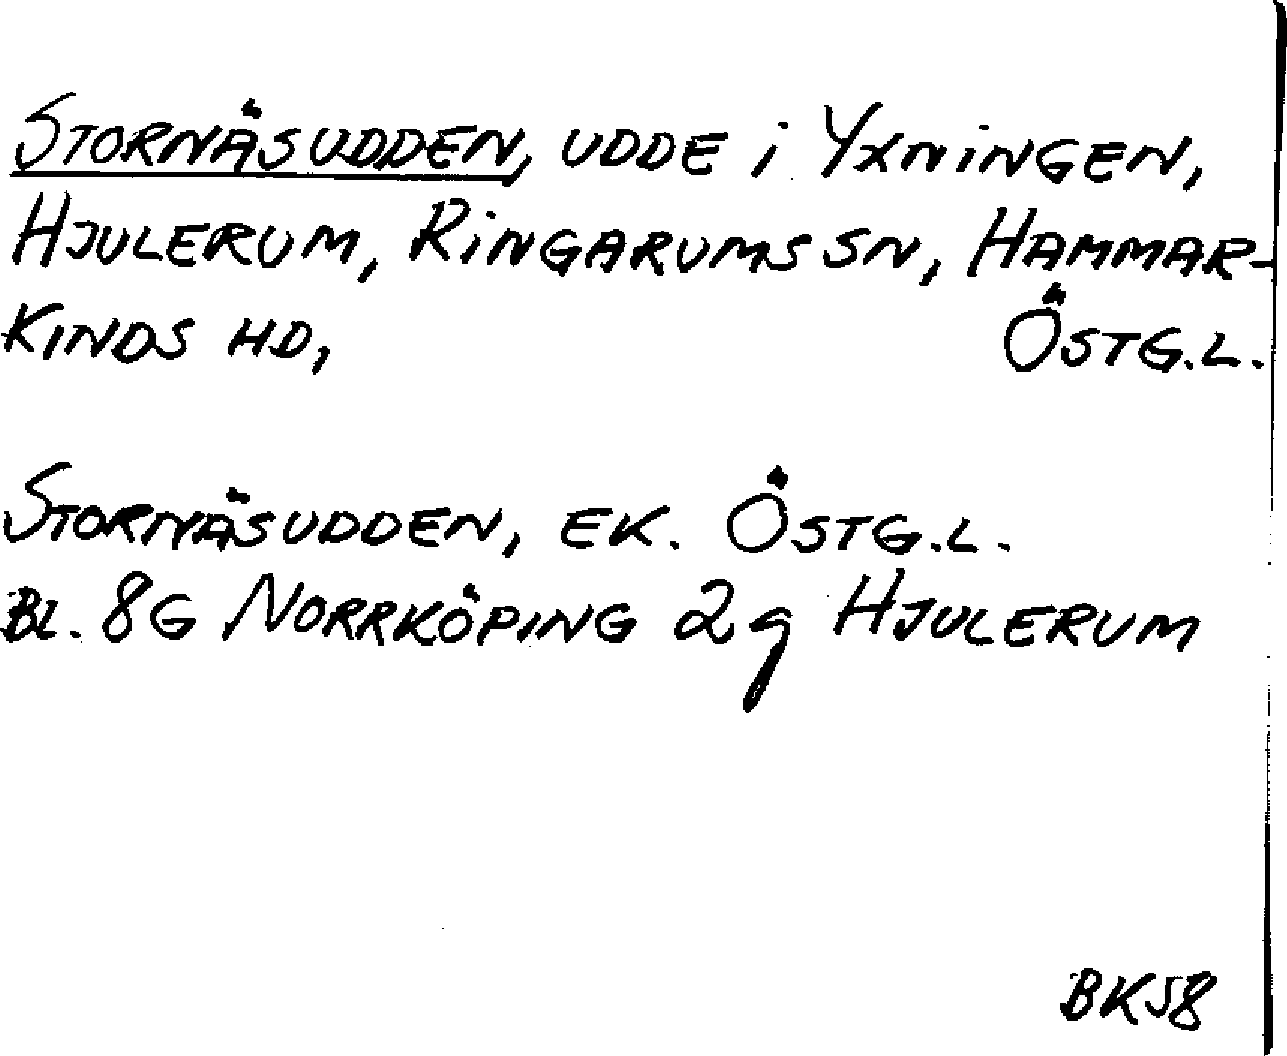 STORNÄSUDDEN, UDDE i YXNINGEN,
HJULERUM, RINGARUMS SN, HAMMAR-
KINDS HD, ÖSTG.L.
STORNÄSUDDEN, EK. ÖSTG.L.
BL. 8G NORRKÖPING 2g HJULERUM
BK58